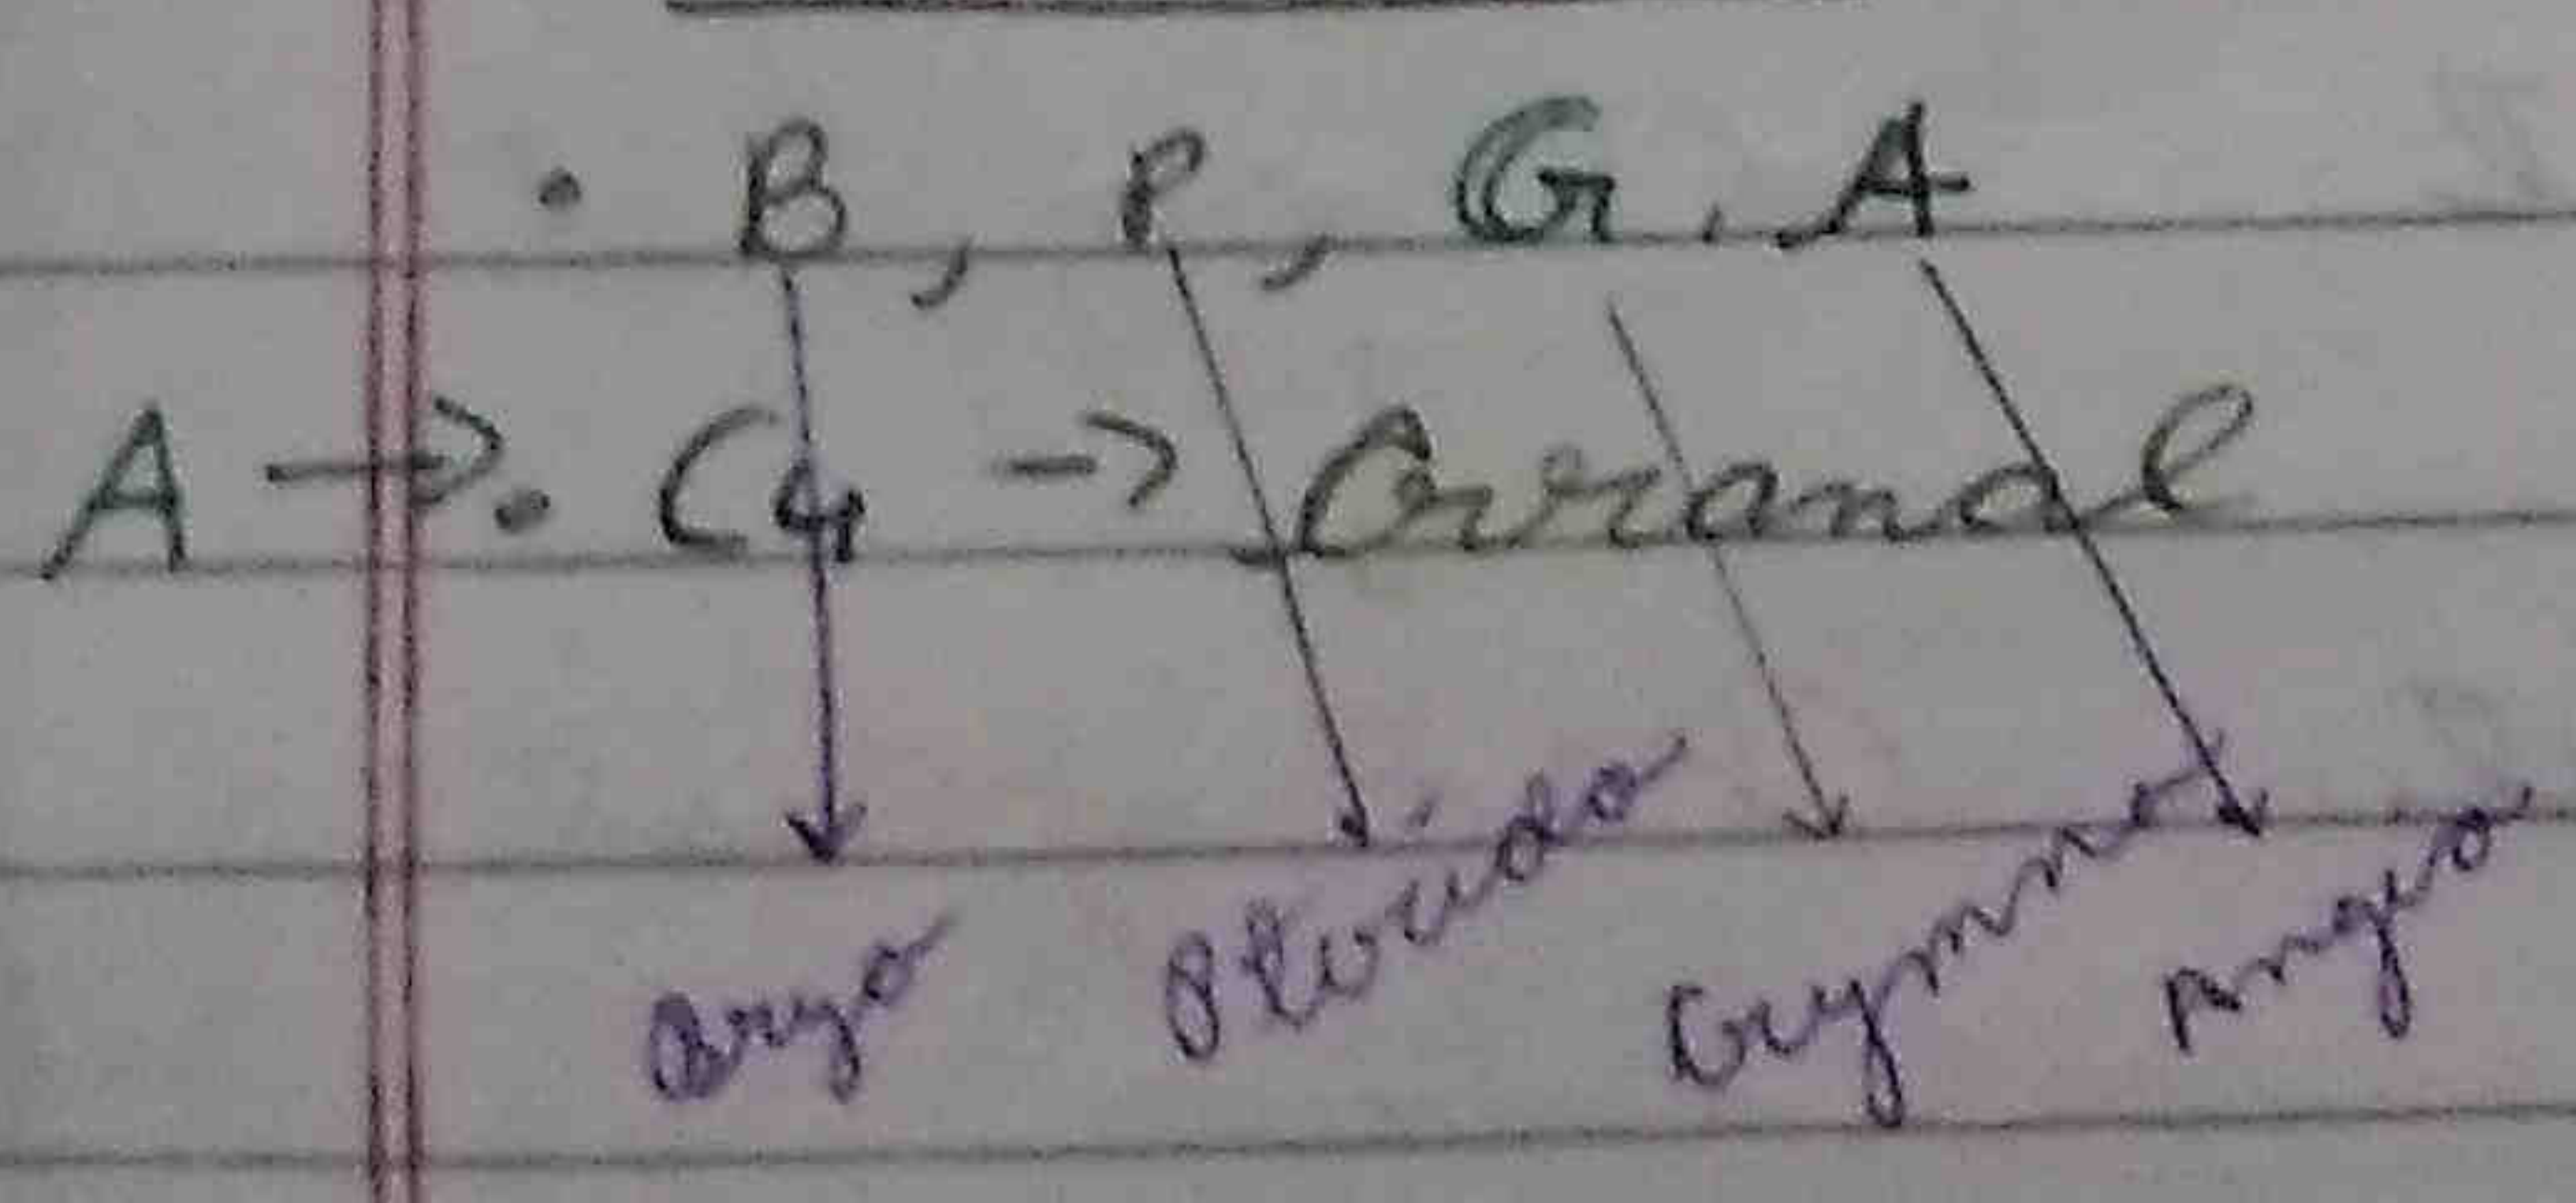 . B, P, G, A
A →. C4 → Grand
Bryo Pterido Gymno Angio